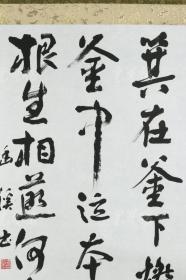 萁在釜下燃
釜中泣本
根生相煎何